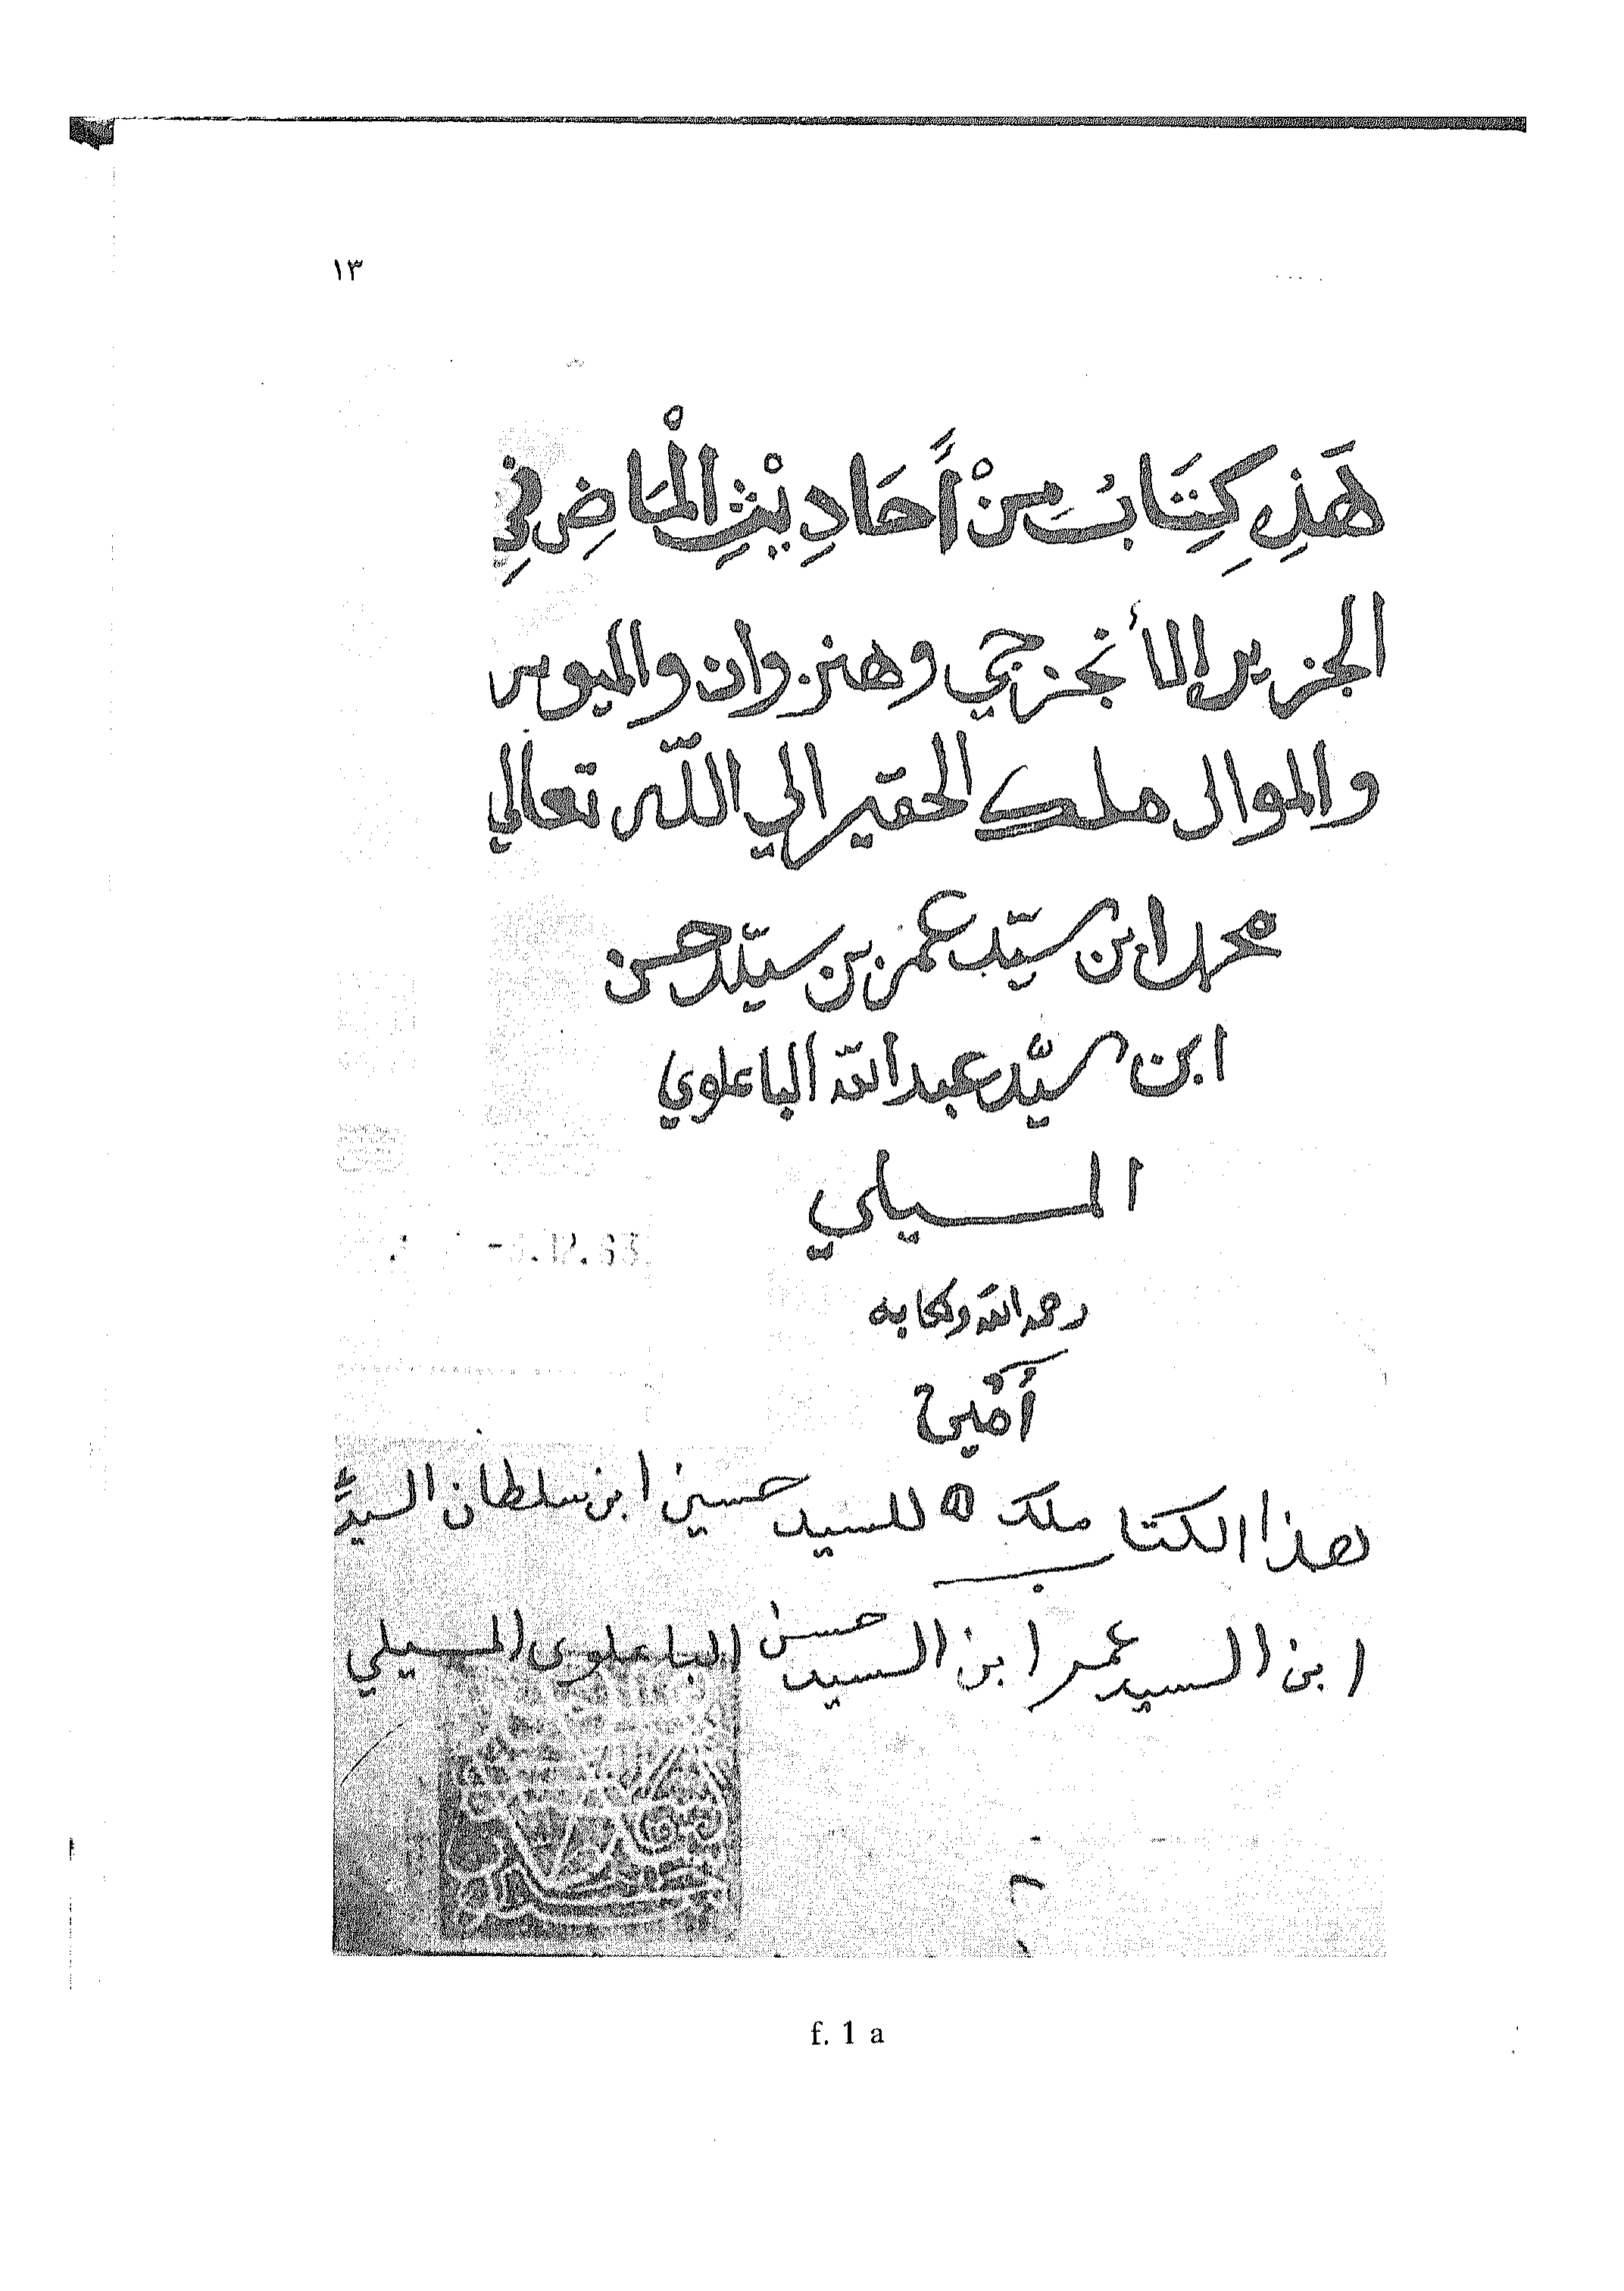 ١٣
هَذِ كِتَابُ مِنْ أَحَادِيْثِ الْمَاضِ فِي
الجزير الأنجزجي وهنزوان والميوس
والموالى ملك الحقير الي اللّه تعالي
محمد ابن سيّد عمر بن سيّد حسن
ابن سيّد عبد الله الباعلوي
المسيلي
أمين
هذا الكتاب ملك للسيد حسين ابن سلطان السيد
ابن السيد عمر ابن السيد حسن الباعلوى المسيلي
f. 1 a